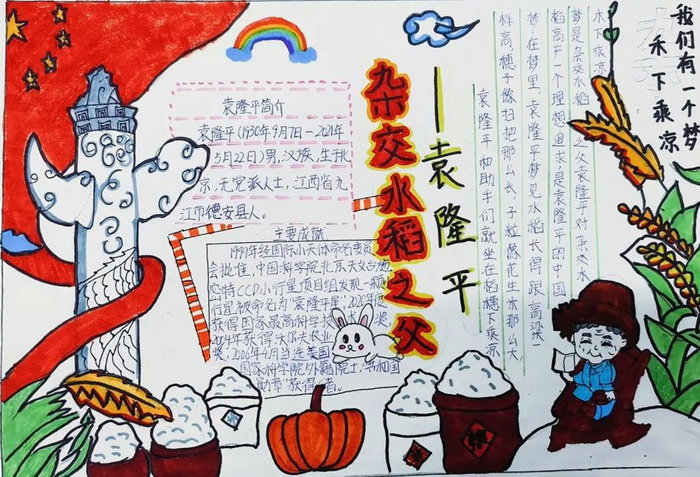 我们有一个梦
禾下乘凉
杂交水稻之父
——袁隆平
袁隆平简介
袁隆平(1930年9月7日-2021年
5月22日)男,汉族,生于北
京,无党派人士,江西省九
江市德安县人。
主要成就
1999年经国际小天体命名委员
会批准,中国科学院北京天文台施
密特CCD小行星项目组发现一颗
行星被命名为"袁隆平星",
获得国家最高科学技术奖
2004年获得沃尔夫农业
奖,2006年4月当选美国
国家科学院外籍院士,"共和国
勋章"获得者。
禾下乘凉
梦是杂交水稻
之父袁隆平对杂交水
稻高产一个理想追求是袁隆平的中国
梦,在梦里,袁隆平梦见水稻长得跟高粱一
样高,穗子像扫把那么长,子粒像花生米那么大,
袁隆平和助手们就坐在稻穗下乘凉